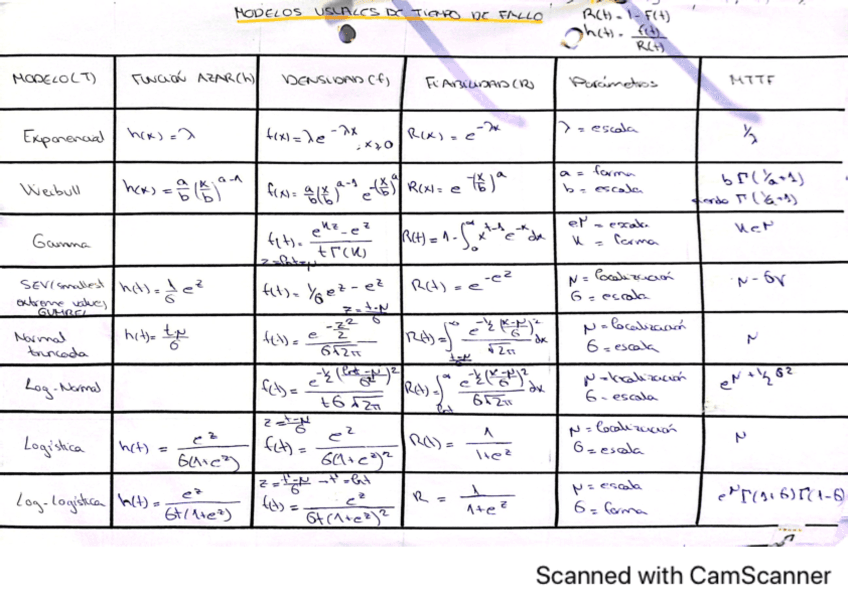 MODELOS USUALES DE TIEMPO DE FALLO
R(t) = 1 - F(t)
h(t) = f(t)/R(t)
MODELO(T) FUNCIÓN AZAR(h) DENSIDAD(f) FIABILIDAD(R) Parámetros MTTF
Exponencial h(x) = λ f(x) = λe^-λx , x>0 R(x) = e^-λx λ = escala 1/λ
Weibull h(x) = a/b (x/b)^a-1 f(x) = a/b (x/b)^a-1 e^-(x/b)^a R(x) = e^-(x/b)^a a = forma
b = escala b Γ(1/a+1)
Γ(1/a+1)
Gamma f(t) = e^kz - e^z / tΓ(k) R(t) = 1 - ∫ x^k-1 e^-x dx e^μ = escala
k = forma k e^μ
z = lnt - μ
SEV (smallest
extreme value)
GUMBEL h(t) = 1/σ e^z f(t) = 1/σ e^z - e^z R(t) = e^-e^z μ = localización
σ = escala μ - σγ
z = t-μ/σ
Normal
truncada h(t) = t-μ/σ f(t) = e^-z²/2 / σ√2π R(t) = ∫ e^-1/2(x-μ/σ)² / √2π dx μ = localización
σ = escala μ
Log-Normal f(t) = e^-1/2(lnt-μ/σ)² / tσ√2π R(t) = ∫ e^-1/2(x-μ/σ)² / σ√2π dx μ = localización
σ = escala e^μ + 1/2 σ²
z = t-μ/σ
Logística h(t) = e^z / σ(1+e^z) f(t) = e^z / σ(1+e^z)² R(t) = 1 / 1+e^z μ = localización
σ = escala μ
z = t'-μ/σ → t' = lnt
Log-logística h(t) = e^z / σt(1+e^z) f(t) = e^z / σt(1+e^z)² R = 1 / 1+e^z μ = escala
σ = forma e^μ Γ(1+σ)Γ(1-σ)
Scanned with CamScanner